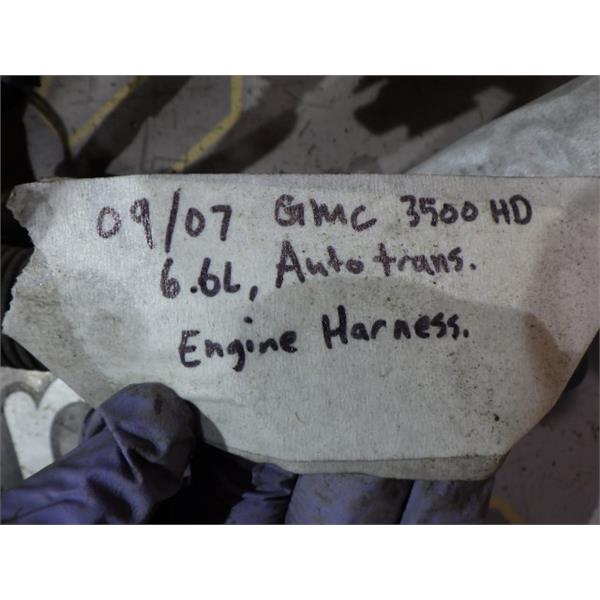 09/07 GMC 3500 HD
6.6L, Auto trans.
Engine Harness.